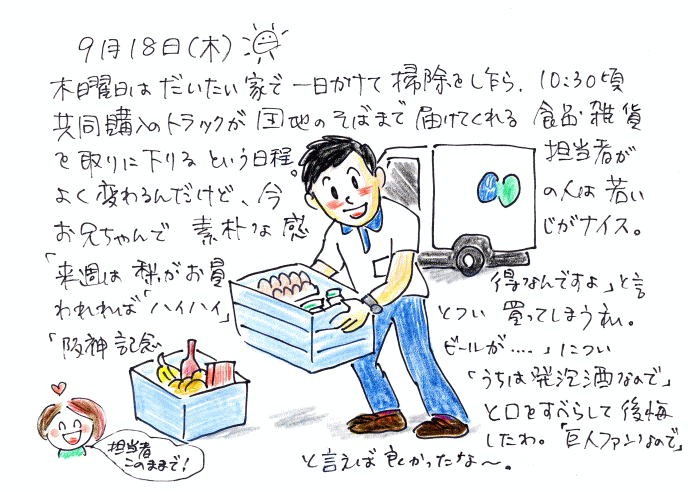 9月18日(木)
木曜日は だいたい 家で 一日かけて 掃除をし乍ら、10:30頃
共同購入のトラックが 団地の そばまで 届けてくれる 食品・雑貨
を 取りに下りる という日程。 担当者が
よく 変わるんだけど、今 の人は 若い
お兄ちゃんで 素朴な感 じがナイス。
「来週は 梨がお買 得なんですよ」と言
われれば「ハイハイ」 とつい 買ってしまうわ。
「阪神記念 ビールが‥‥」につい
「うちは 発泡酒なので」
と口をすべらして 後悔
したわ。「巨人ファンなので」
と言えば 良かったな〜。
担当者
このままで!